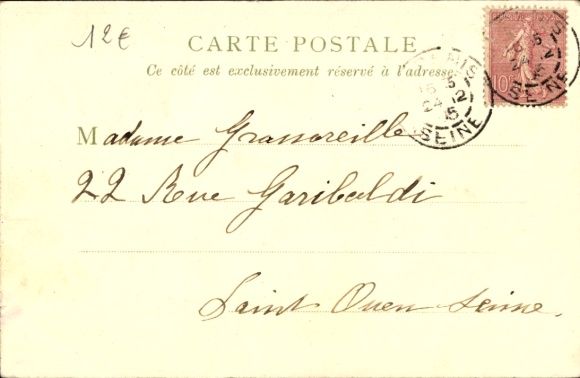 12€
CARTE POSTALE
Ce côté est exclusivement réservé à l'adresse
Madame Grassoreille
22 Rue Garibaldi
Saint Ouen Seine.
10
SEINE
SEINE